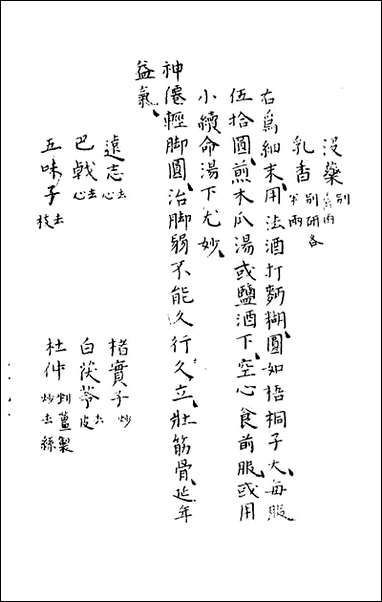 没藥別
乳香別研各半兩
右爲細末用法酒打麪糊圓如梧桐子大每服
伍拾圓煎木瓜湯或鹽酒下空心食前服或用
小續命湯下尤妙
神僊輕脚圓治脚弱不能久行久立壯筋骨延年
益氣
遠志去心 楮實子炒
巴戟去心 白茯苓去皮
五味子去枝 杜仲剉薑製炒去絲